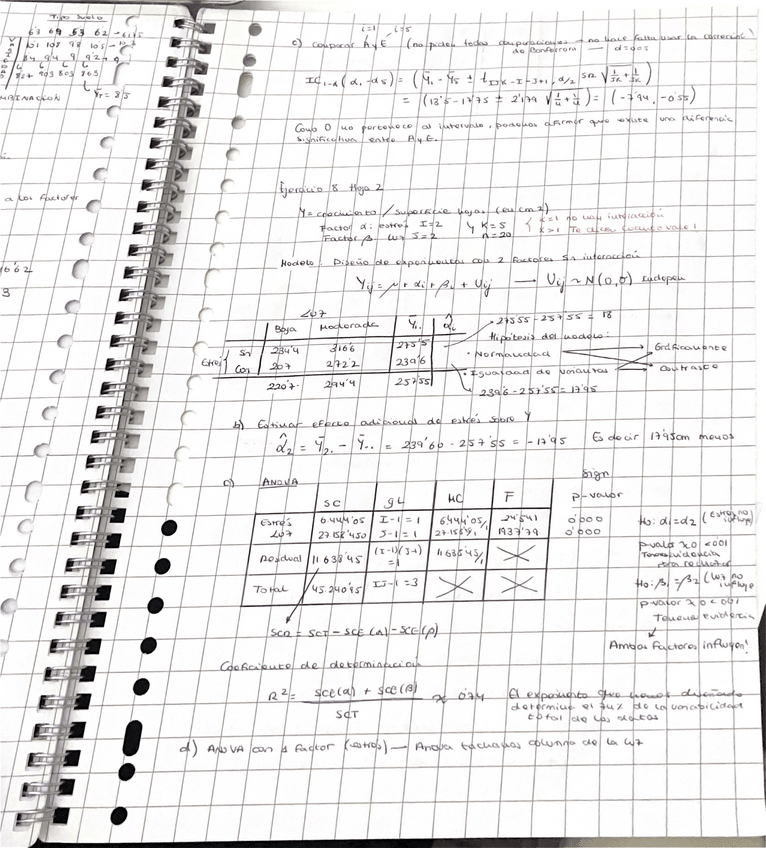 Tipo Suelo
63 69 53 62
101 108 98 105
84 94 9 92
6 6 6 6
857 903 803 863
Ȳ.. = 85
MBINACIÓN
a los factores
16'62
3
i=1 i=5
c) Comparar A y E (no piden todas comparaciones — no hace falta usar la corrección
de Bonferroni — α=0'05
IC₁₋α (α₁ - α₅) = (Ȳ₁. - Ȳ₅. ± t IJK-I-J+1, α/2 SR √(1/JK + 1/JK))
= (13'5 - 17'75 ± 2'179 √(1/4 + 1/4)) = (-7'94, -0'55)
Como 0 no pertenece al intervalo, podemos afirmar que existe una diferencia
significativa entre A y E.
Ejercicio 8 Hoja 2
Y = crecimiento / superficie hojas (en cm²)
Factor α: estrés I=2
Factor β: luz J=2
y K=5
n=20
{ K=1 no hay interacción
K>1 Te dicen cuanto vale!
Modelo: Diseño de experimentos con 2 factores sin interacción
Yij = μ + αi + βj + Uij → Uij ~ N(0,σ) Indepen
Luz
Baja Moderada Ȳi. α̂i
Estrés { Sin 234'4 316'6 275'5
Con 207 272'2 239'6
220'7 294'4 257'55
275'55 - 257'55 = 18
Hipótesis del modelo:
· Normalidad
· Igualdad de varianzas
Gráficamente
Contraste
239'6 - 257'55 = 17'95
b) Estimar efecto adicional de estrés sobre Y
α̂₂ = Ȳ₂. - Ȳ.. = 239'60 - 257'55 = -17'95 Es decir 17'95cm menos
c) ANOVA
SC gL MC F Sign p-valor
Estrés 6.444'05 I-1 = 1 6444'05/1 24'541 0'000
Luz 27.158'450 J-1 = 1 27.158/1 1937'79 0'000
Residual 11.638'45 (I-1)(J-1) = 1 11.638'45/1
Total 45.240'95 IJ-1 = 3
SCR = SCT - SCE(α) - SCE(β)
H₀: α₁=α₂ (Estrés no influye)
p-valor ≈ 0 < 001
Tenemos evidencia
para rechazar
H₀: β₁=β₂ (luz no influye
p-valor ≈ 0 < 001
Tenemos evidencia
Ambos Factores influyen!
Coeficiente de determinación
R² = SCE(α) + SCE(β) / SCT ≈ 0'74 El experimento que hemos diseñado
determina el 74% de la variabilidad
total de los datos
d) ANOVA con 1 factor (estrés) — Anova tachamos columna de la luz